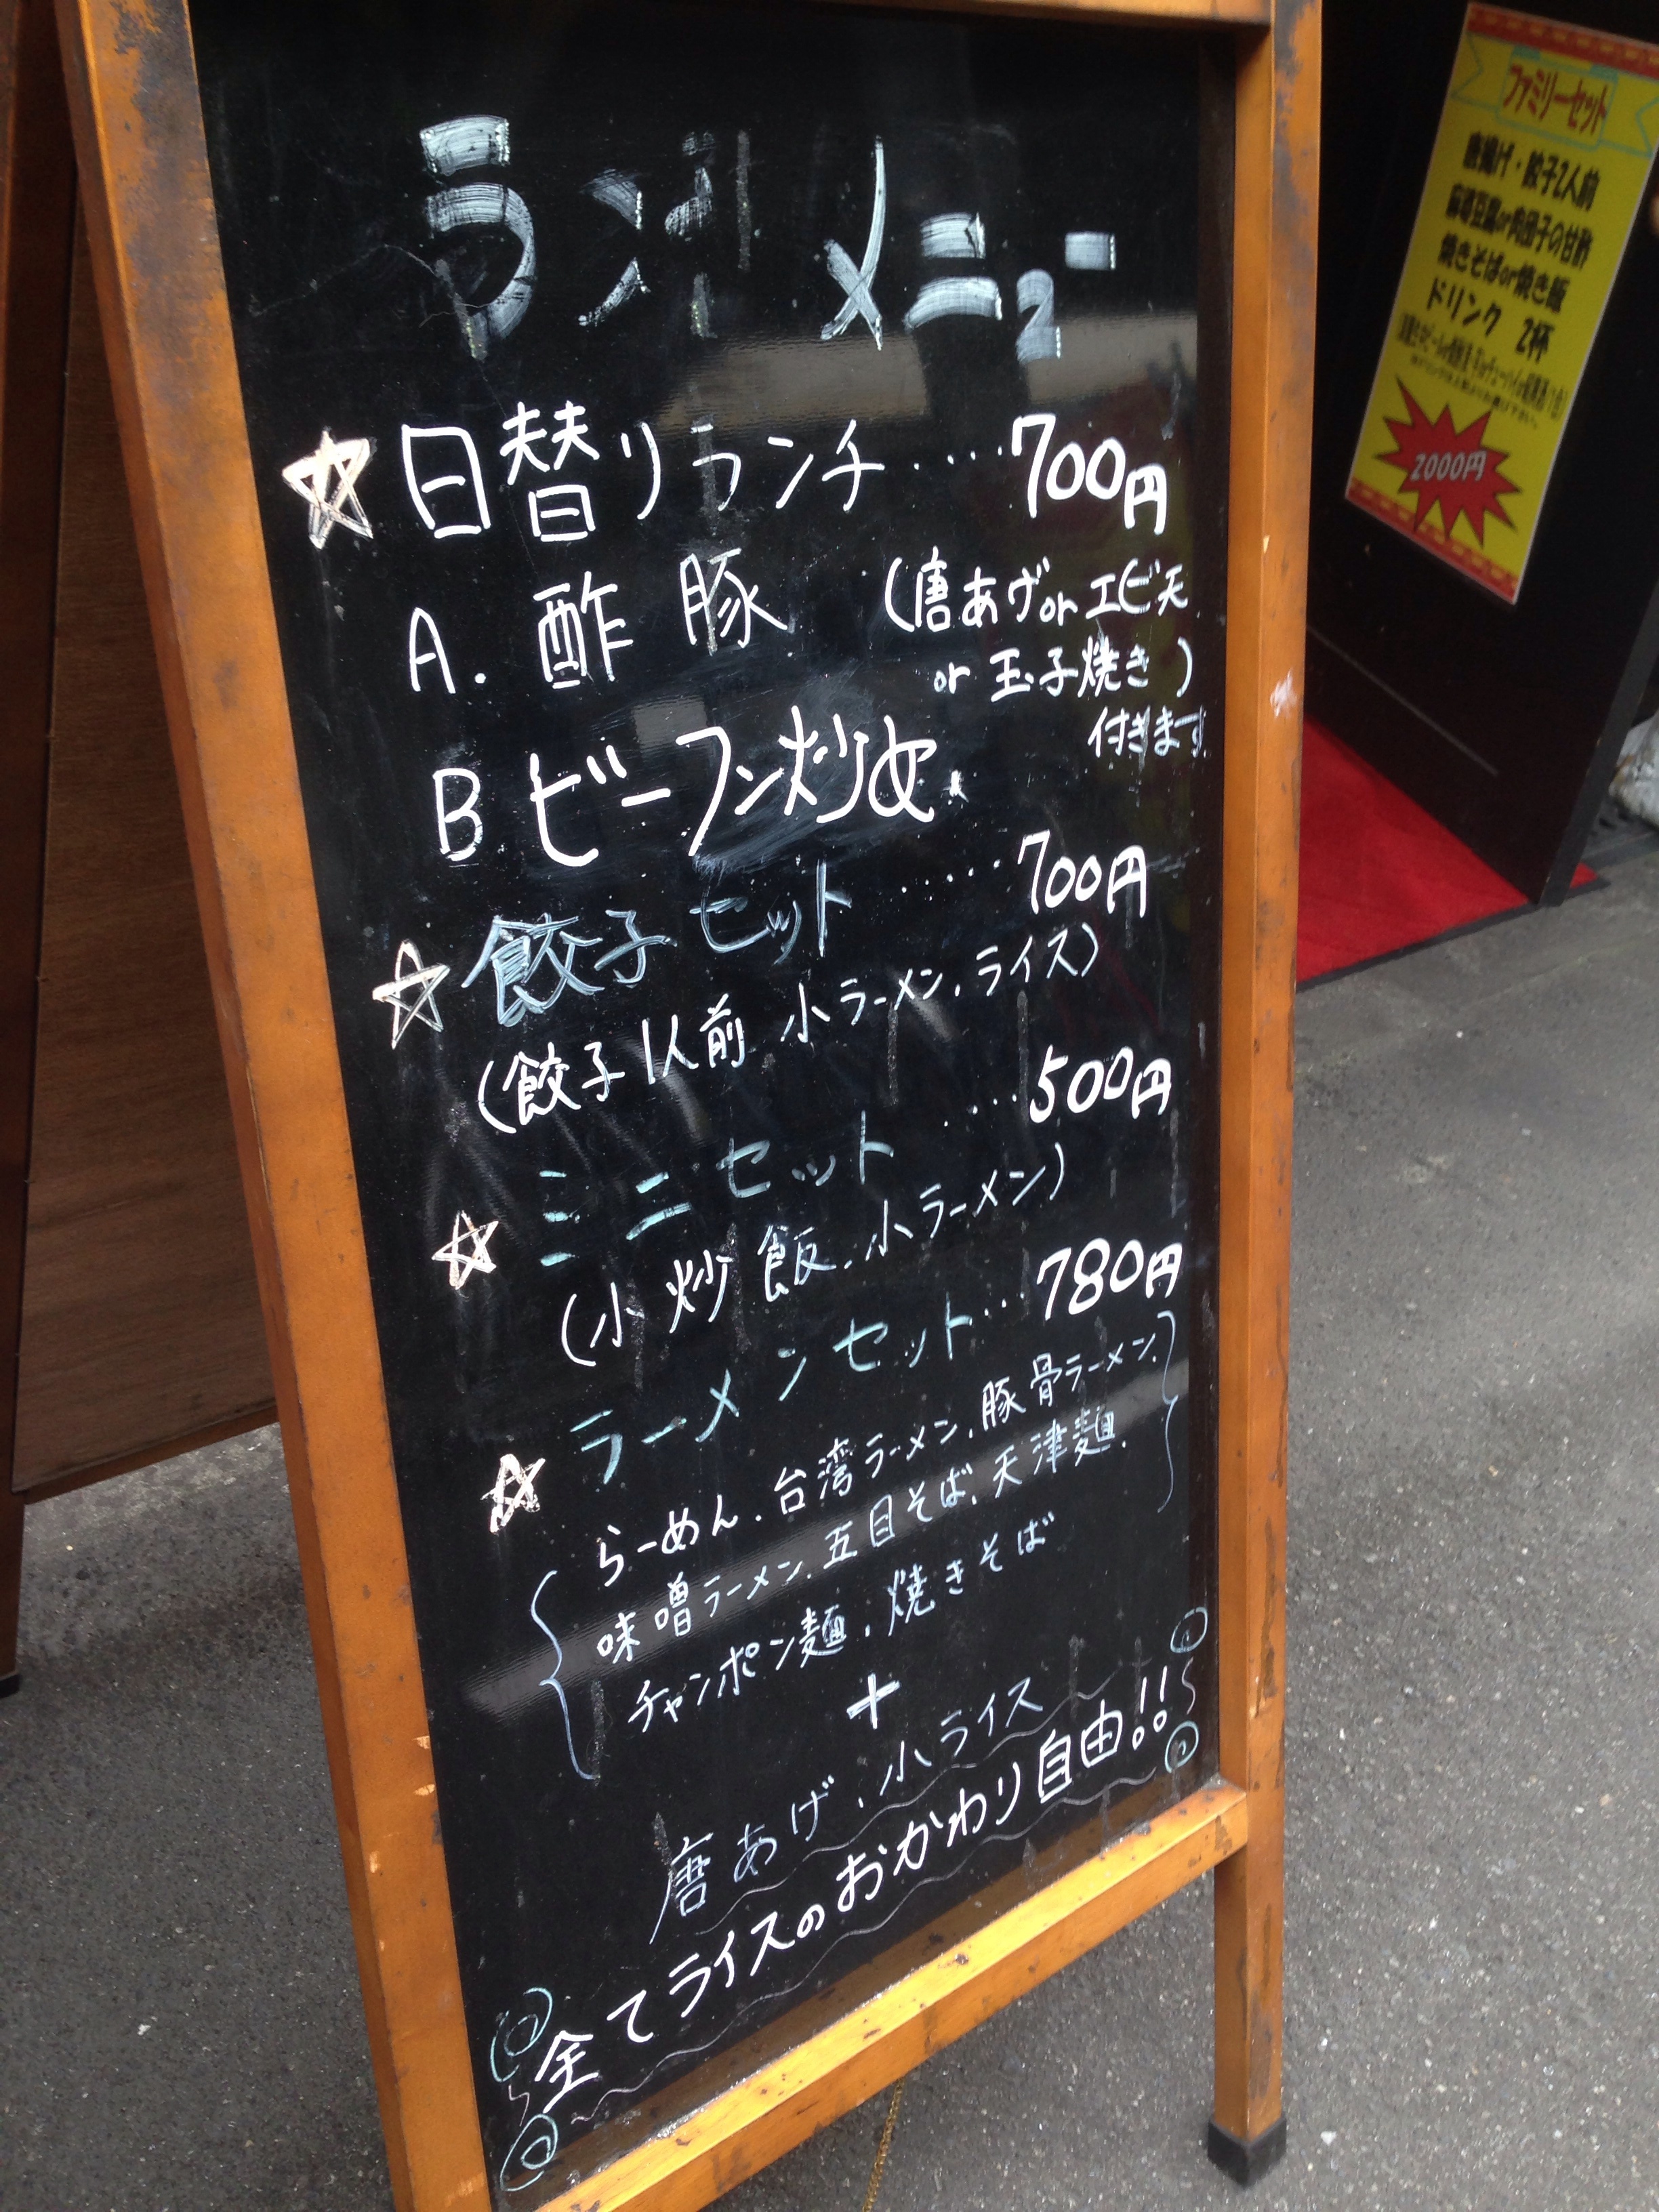 ランチメニュー
日替リランチ.....700円
A. 酢豚 (唐あげorエビ天
or 玉子焼き)
付きます
B ビーフン炒め
餃子セット.....700円
(餃子1人前 小ラーメン.ライス)
ミニセット....500円
(小炒飯.小ラーメン)
ラーメンセット...780円
らーめん.台湾ラーメン.豚骨ラーメン.
味噌ラーメン.五目そば.天津麺.
チャンポン麺.焼きそば
+
唐あげ.小ライス
全てライスのおかわり自由!!
ファミリーセット
唐揚げ・餃子2人前
麻婆豆腐or肉団子の甘酢
焼きそばor焼き飯
ドリンク 2杯
2000円